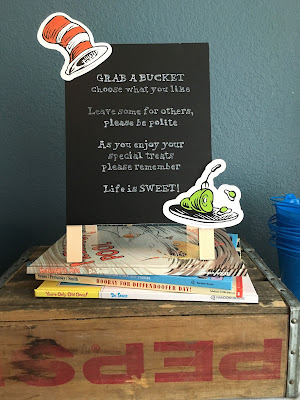 GRAB A BUCKET
choose what you like
Leave some for others,
please be polite
As you enjoy your
special treats
please remember
Life is SWEET!
HOORAY FOR DIFFENDOOFER DAY!
You're Only Old Once!
Dr. Seuss
PEPS